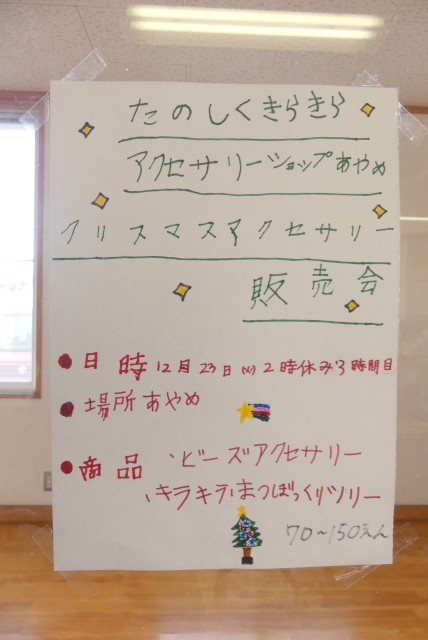 たのしくきらきら
アクセサリーショップあやめ
クリスマスアクセサリー
販売会
● 日時 12月23日(火)2時休み3時間目
● 場所あやめ
● 商品 ・ビーズアクセサリー
・キラキラ・まつぼっくりツリー
70〜150えん